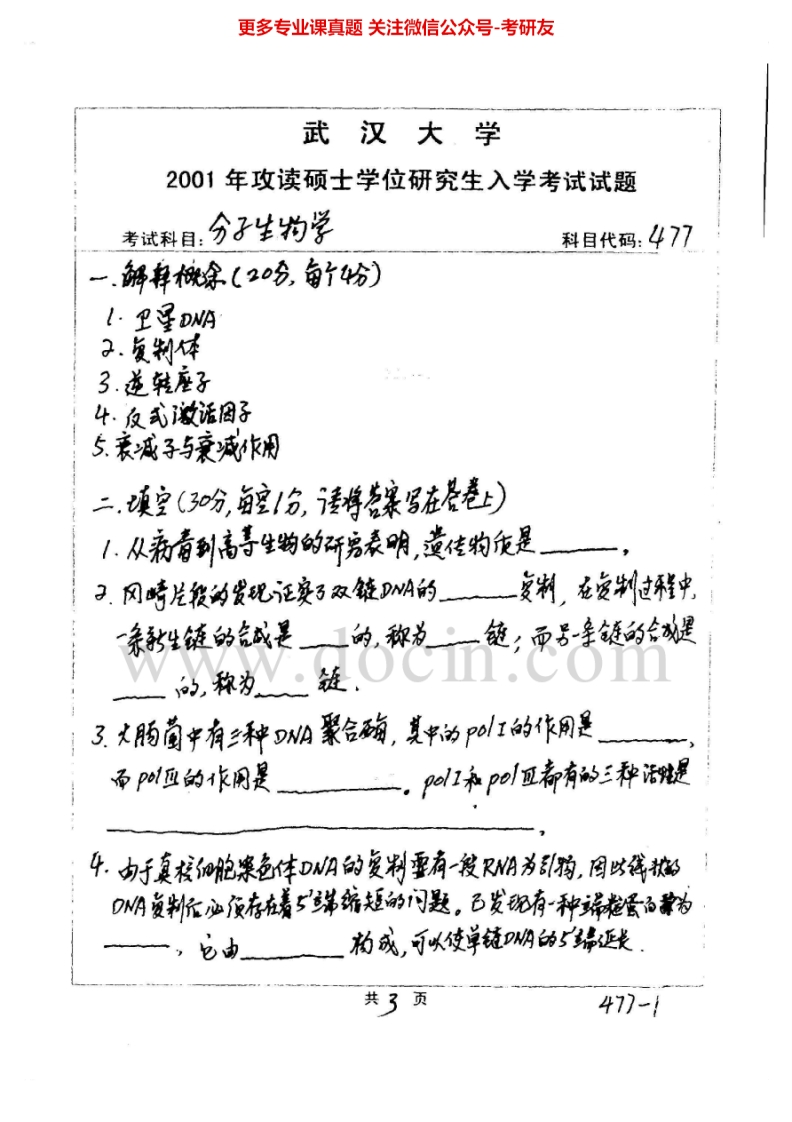 更多专业课真题 关注微信公众号-考研友
武 汉 大 学
2001 年攻读硕士学位研究生入学考试试题
考试科目: 分子生物学 科目代码: 477
一.解释概念(20分,每个4分)
1. 卫星DNA
2. 复制体
3. 逆转座子
4. 反式激活因子
5. 衰减子与衰减作用
二.填空(30分,每空1分,请将答案写在答卷上)
1. 从病毒到高等生物的研究表明,遗传物质是______。
2. 冈崎片段的发现证实了双链DNA的______复制,在复制过程中,
一条新生链的合成是____的,称为____链;而另一条链的合成是
____的,称为____链.
www.docin.com
3. 大肠菌中有三种DNA聚合酶,其中的polI的作用是________,
而polIII的作用是__________。polI和polIII都有的三种活性是
______________________________。
4. 由于真核细胞染色体DNA的复制要有一段RNA为引物,因此线状的
DNA复制后必须存在着5'端缩短的问题。已发现有一种端粒蛋白称为
______,它由________构成,可以使单链DNA的5'端延长.
共 3 页
477-1